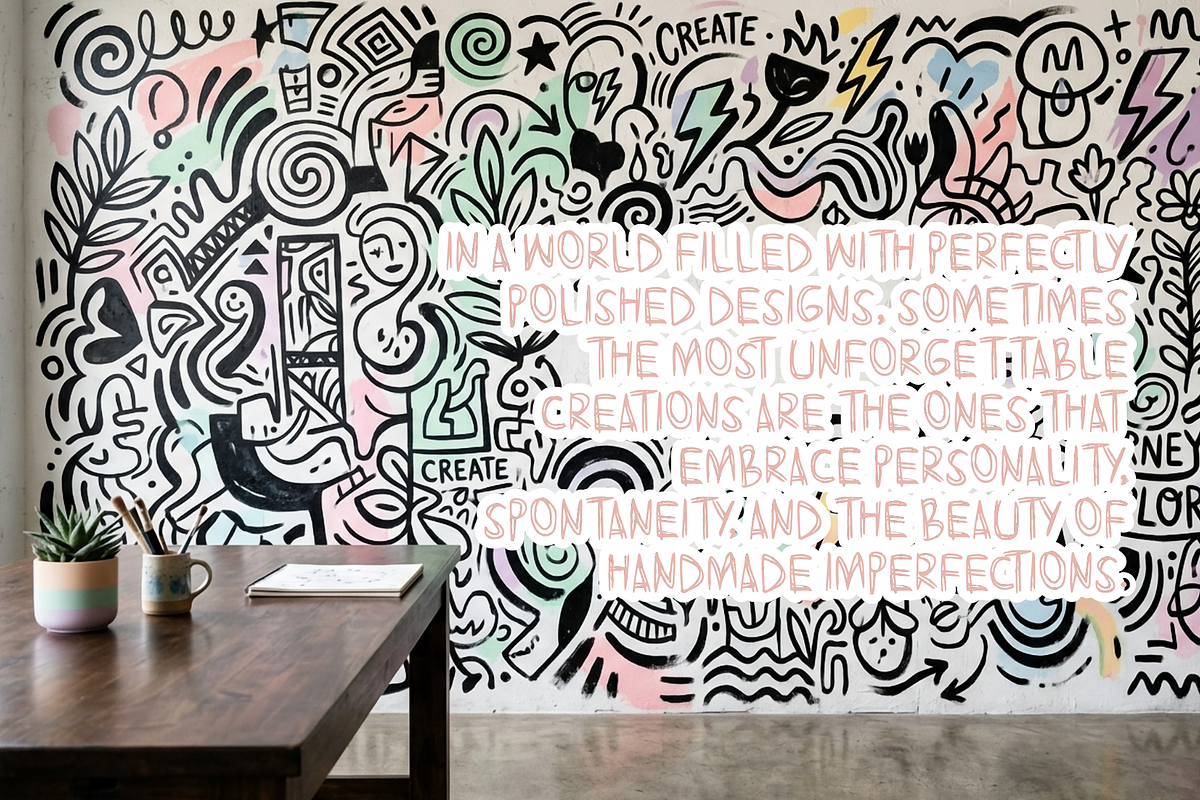 CREATE
IN A WORLD FILLED WITH PERFECTLY
POLISHED DESIGNS, SOMETIMES
THE MOST UNFORGETTABLE
CREATIONS ARE THE ONES THAT
EMBRACE PERSONALITY,
SPONTANEITY, AND THE BEAUTY OF
HANDMADE IMPERFECTIONS.
CREATE